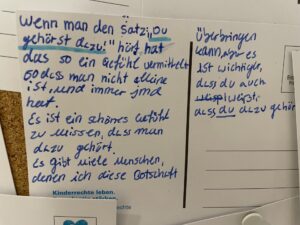 Wenn man den Satz „Du
gehörst dazu!“ hört, hat
das so ein Gefühl vermittelt
sodass man nicht alleine
ist, und immer jmd
hat.
Es ist ein schönes Gefühl
zu wissen, dass man
dazu gehört.
Es gibt viele Menschen,
denen ich diese Botschaft
Kinderrechte leben.
überbringen
kann, aber es
ist wichtig,
dass du auch
weißt,
dass du dazu gehörst